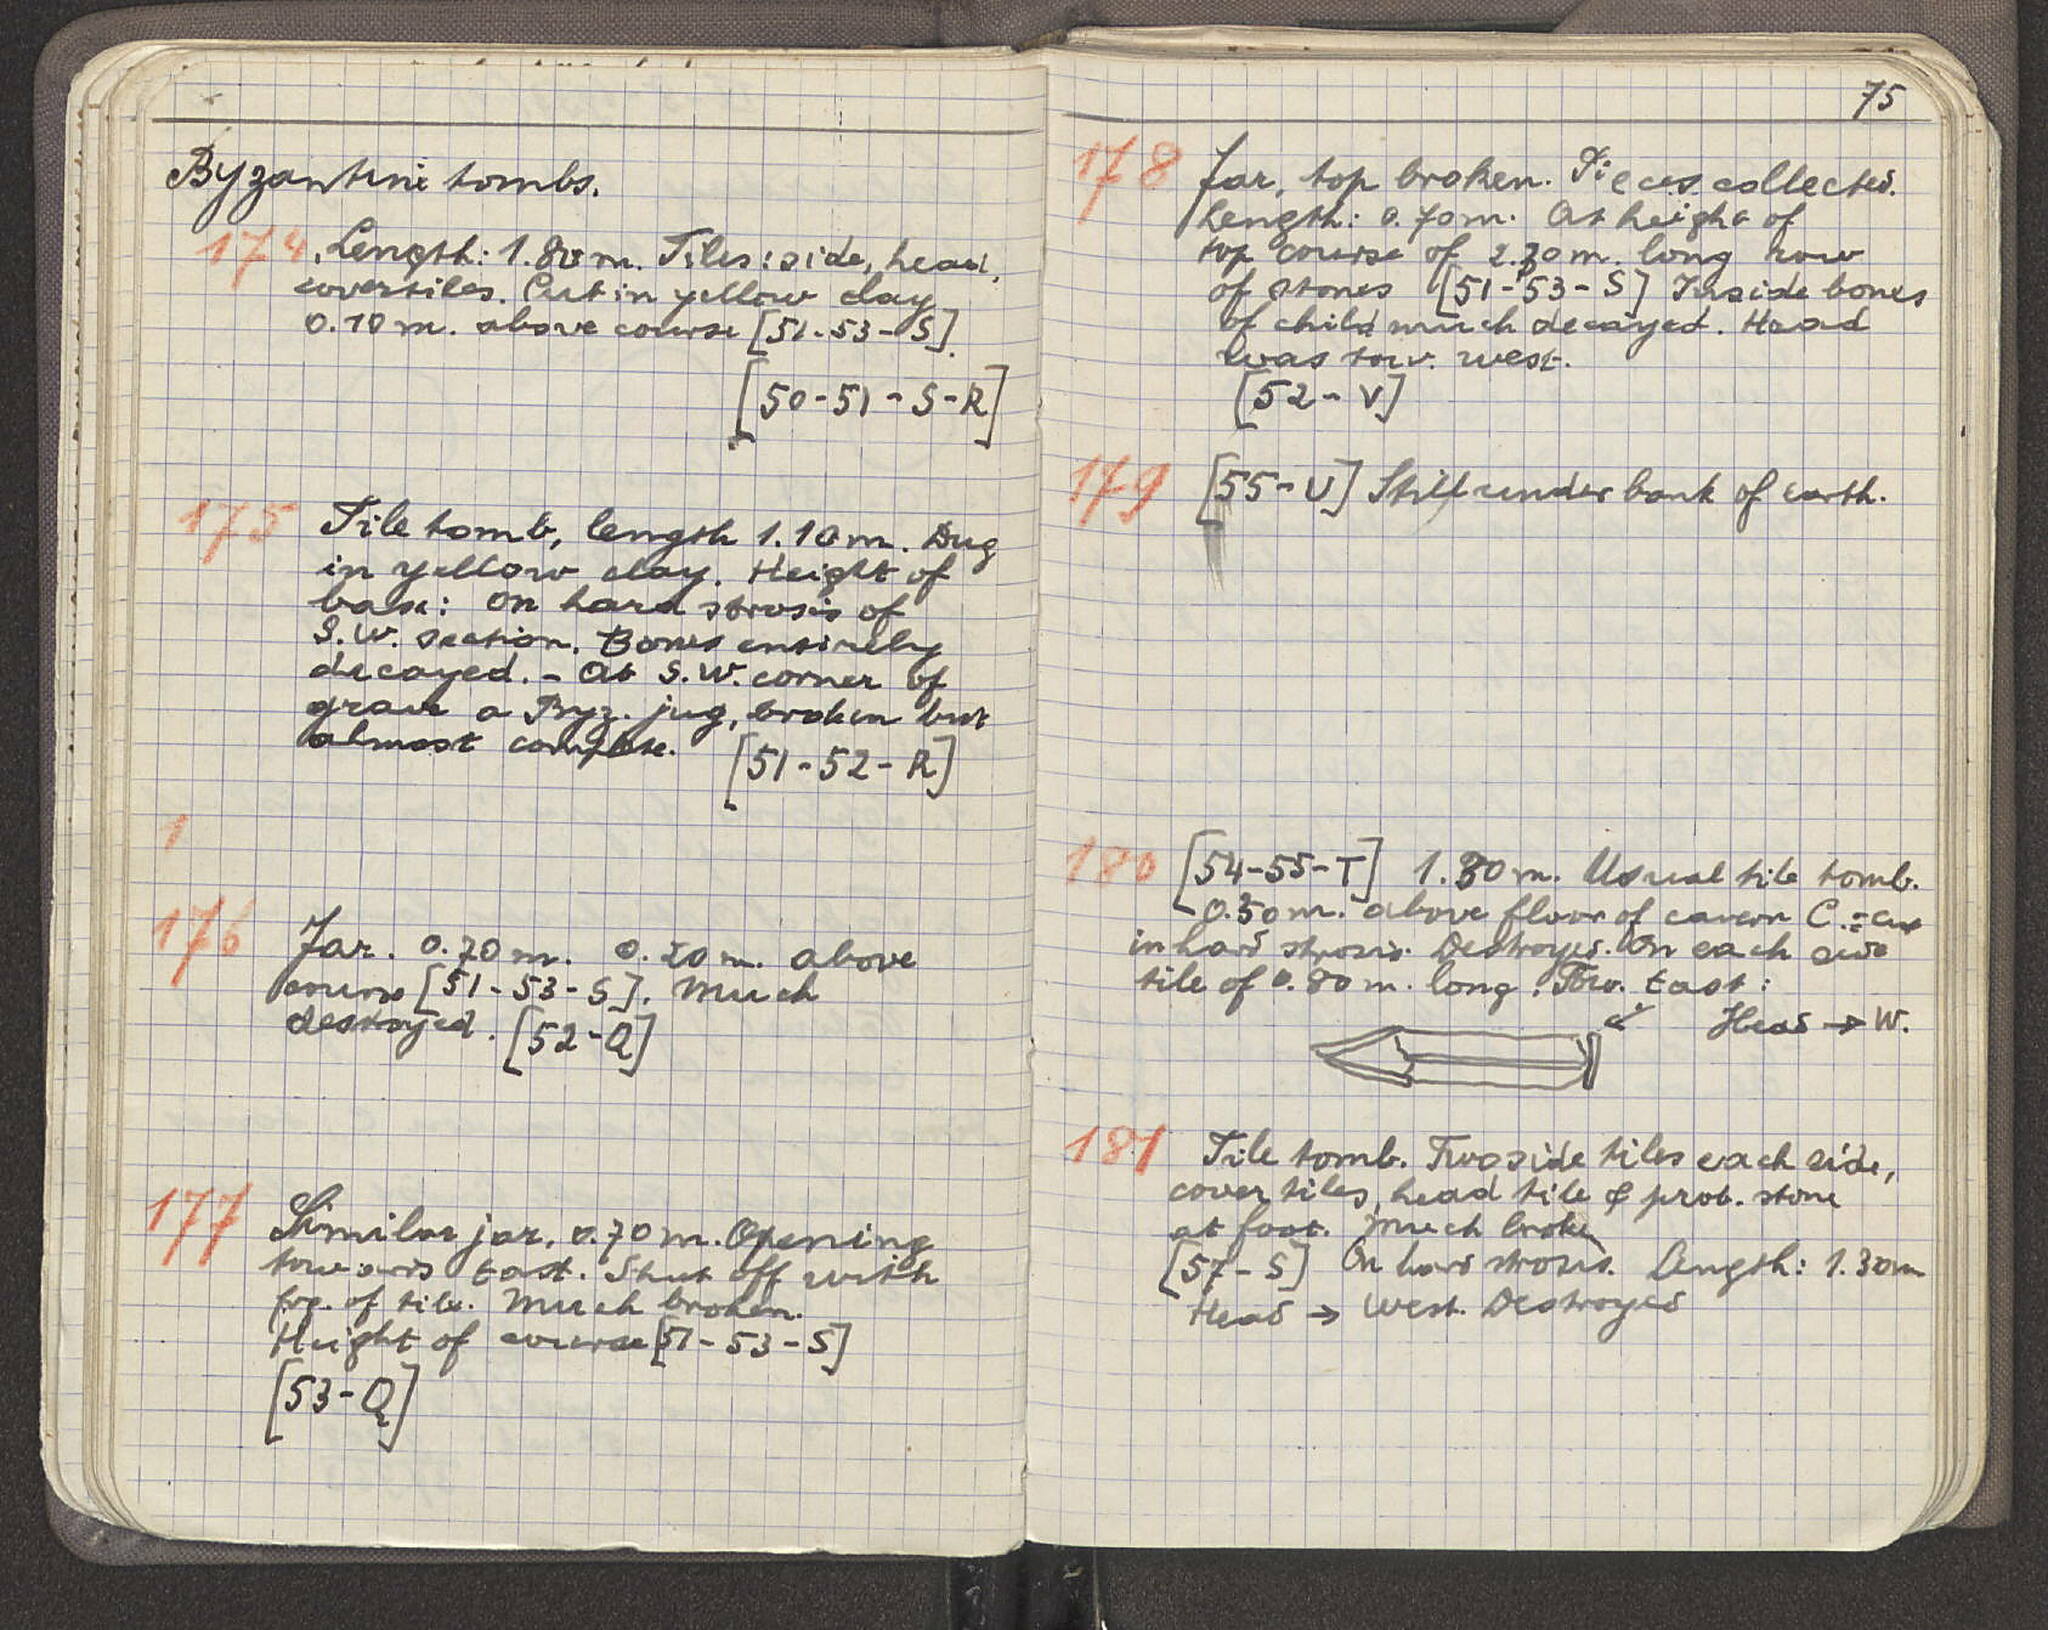 Byzantine tombs.
174. Length: 1.80 m. Tiles: side, head,
covertiles. Cut in yellow clay
0.10 m. above course [51-53-S].
[50-51-S-R]
175 Tile tomb, length 1.10 m. Dug
in yellow clay. Height of
base: On hard strosis of
S.W. section. Bones entirely
decayed. - At S.W. corner of
grave a Byz. jug, broken but
almost complete. [51-52-R]
1
176 Jar. 0.70 m. 0.20 m. above
course [51-53-S]. Much
destroyed. [52-Q]
177 Similar jar, 0.70 m. Opening
towards East. Shut off with
frg. of tile. Much broken.
Height of course [51-53-S]
[53-Q]
75
178 Jar, top broken. Pieces collected.
Length: 0.70 m. At height of
top course of 2.70 m. long row
of stones [51-53-S] Inside bones
of child much decayed. Head
was tow. west.
[52-V]
179 [55-U] Still under bank of earth.
180 [54-55-T] 1.80 m. Usual tile tomb.
0.50 m. above floor of cavern C. = cut
in hard strosis. Destroyed. On each side
tile of 0.80 m. long. Tow. East:
Head → W.
181 Tile tomb. Two side tiles each side,
cover tiles, head tile & prob. stone
at foot. Much broken
[57-S] On hard strosis. Length: 1.30 m
Head → West. Destroyed